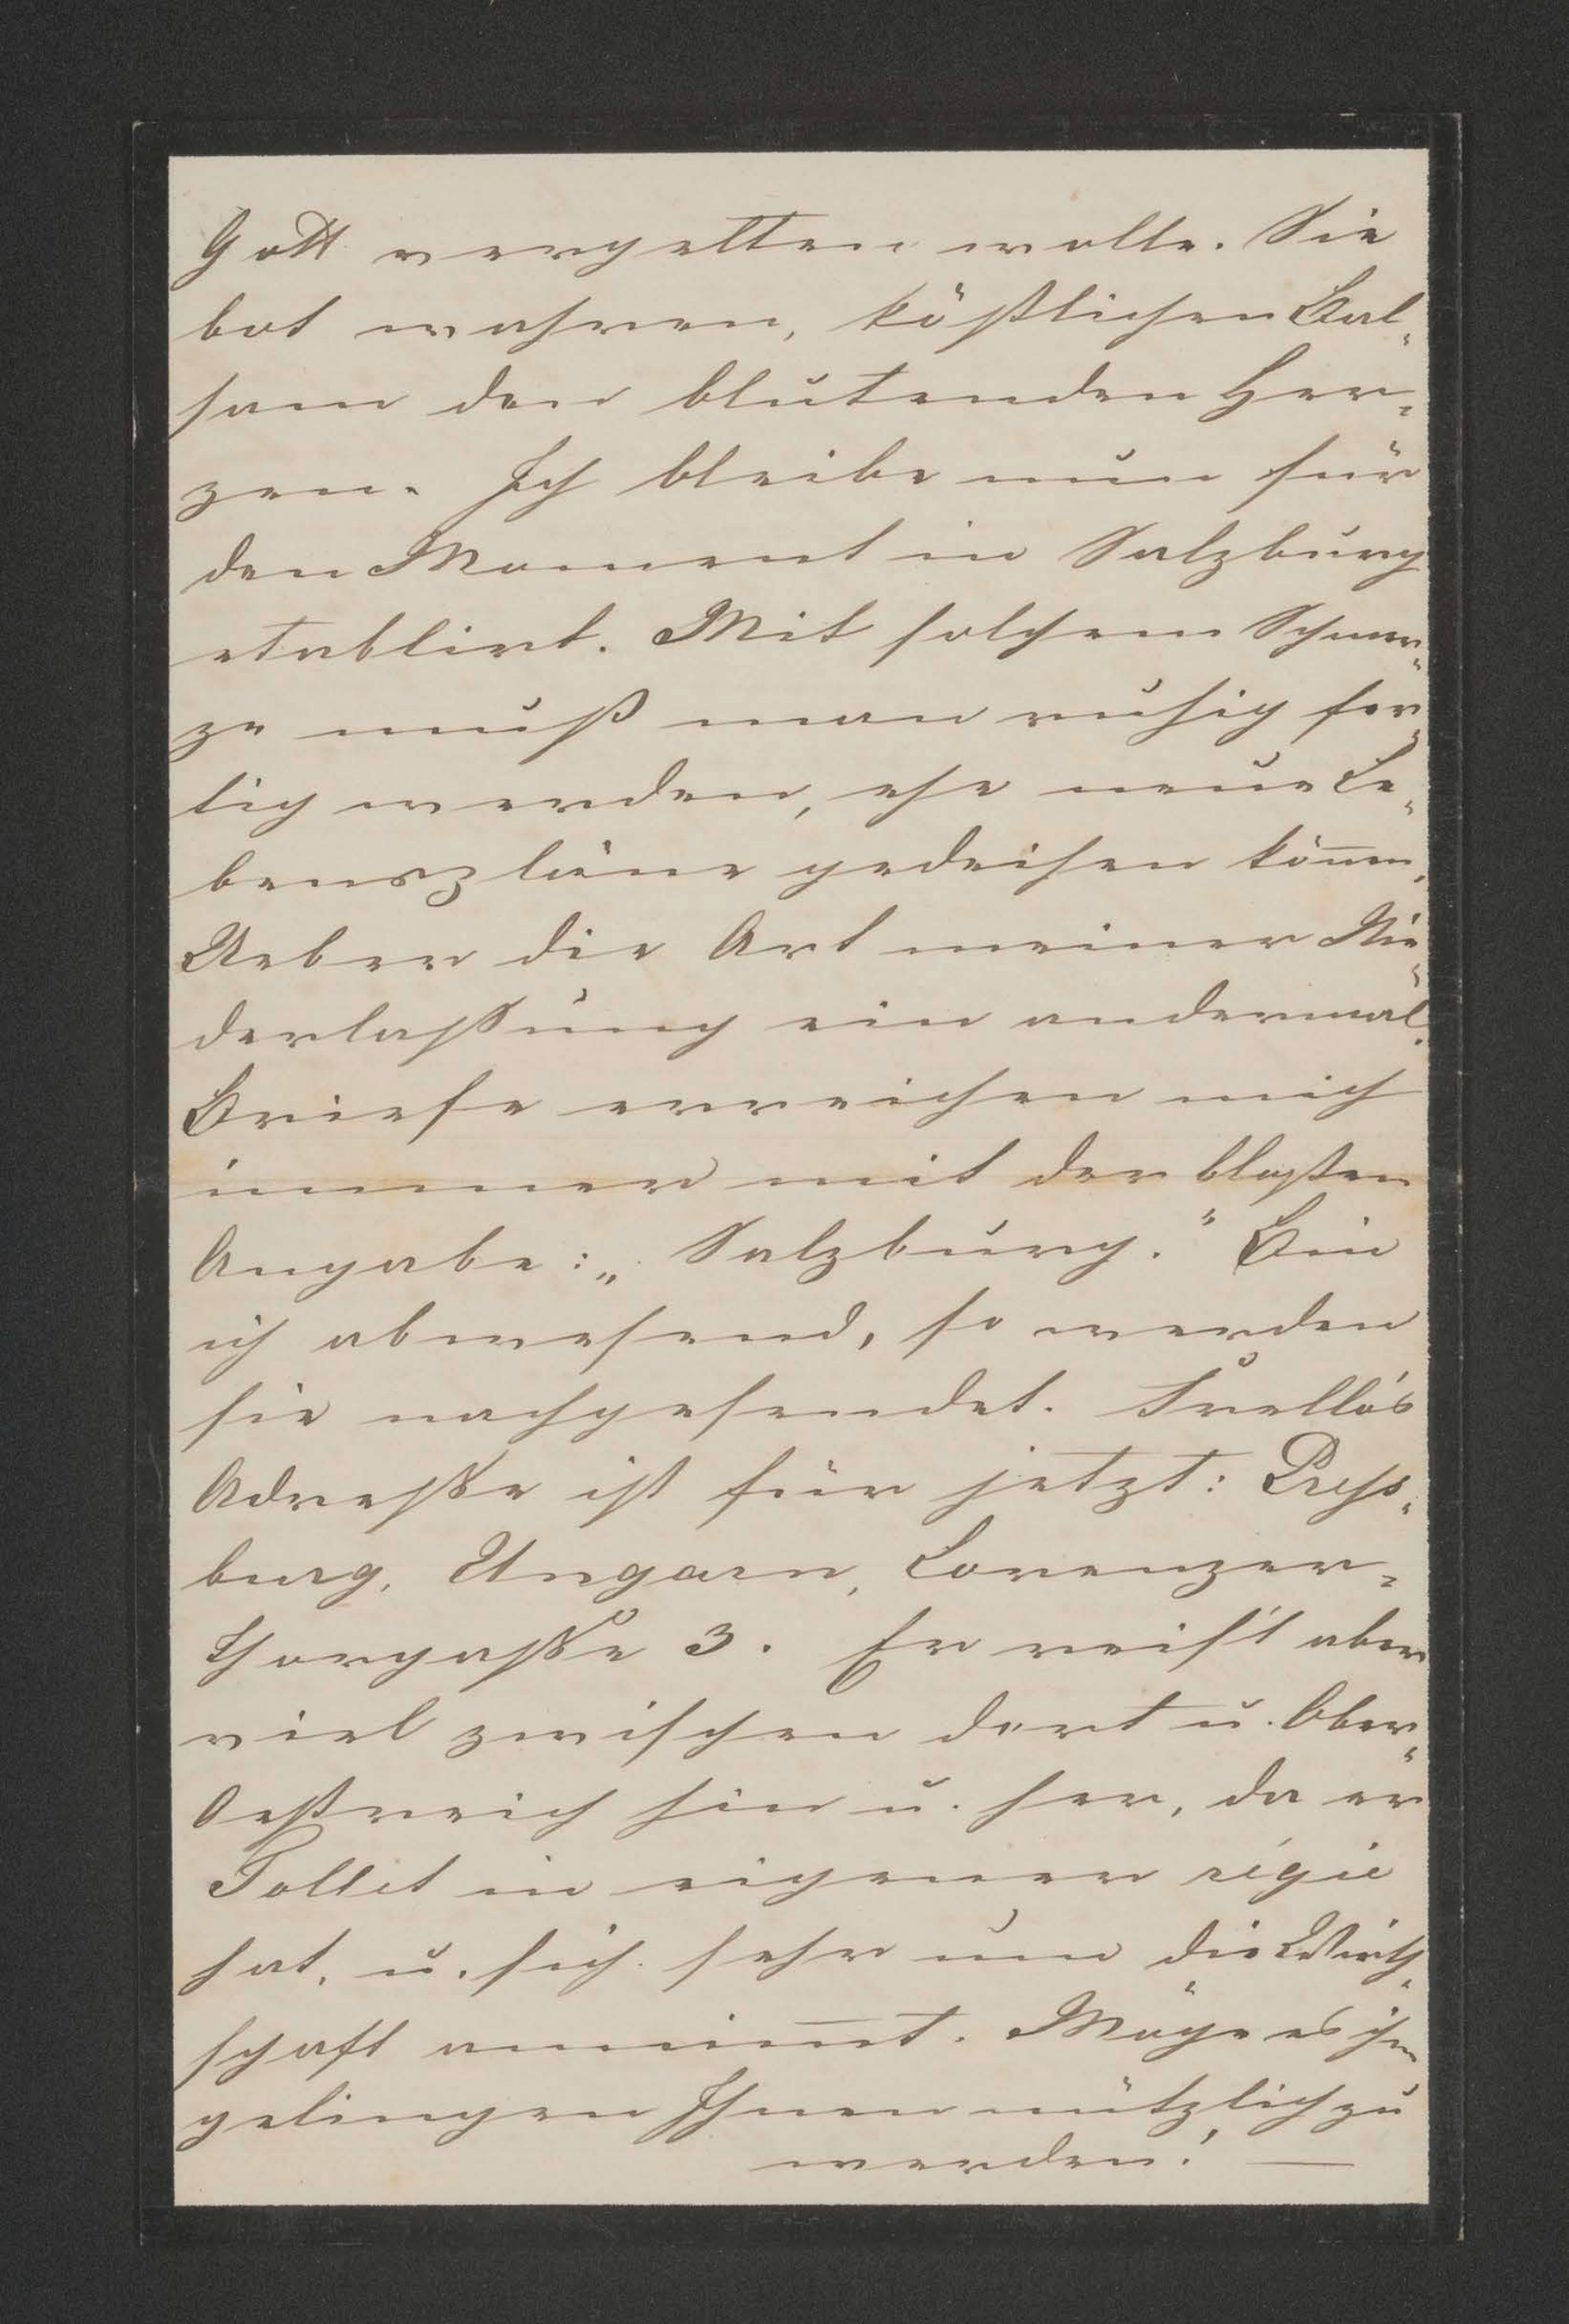 Gott vergelten wolle. Sie
bot wahren, köstlichen Bal-
sam den blutenden Her-
zen. Ich bleibe nun für
den Moment in Salzburg
etablirt. Mit solchem Schmer-
ze muß man ruhig fer-
tig werden, ehe neue Le-
benspläne gedeihen könen.
Ueber die Art meiner Nie-
derlaßung ein andermal.
Briefe erreichen mich
immer mit der bloßen
Angabe: „Salzburg.“ Bin
ich abwesend, so werden
sie nachgesendet.
Adreße ist für jetzt: Press-
burg, Ungarn, Lorenzer-
thorgaße 3. Er reis't aber
viel zwischen dort u. Ober-
Oestreich hin u. her, da er
Tollet in eigener régie
hat, u. sich sehr um die Wirth-
schaft annimt. Möge es ihm
gelingen Ihnen nützlich zu
werden! —